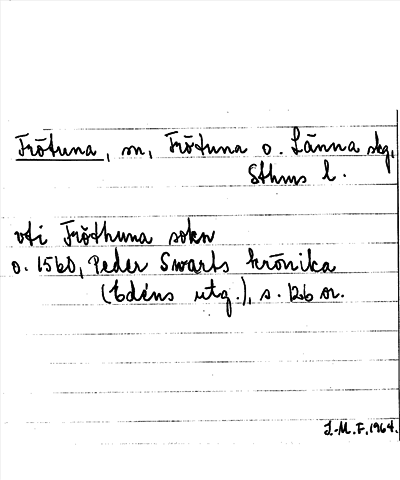 Frötuna, sn, Frötuna o. Länna skg,
Sthms l.
vti Fröthuna sokn
o. 1560, Peder Swarts krönika
(Edéns utg.), s. 126 or.
J.-M. F. 1964.